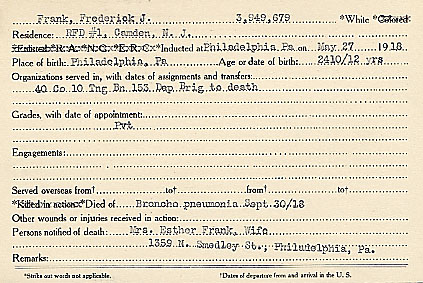 Frank, Frederick J. 3,949,679 *White *Colored
Residence: RFD #1, Camden, N. J.
*Enlisted *R.A. *N.G. *E.R.C. *Inducted at Philadelphia Pa on May 27 1918
Place of birth: Philadelphia, Pa Age or date of birth: 24 10/12 yrs
Organizations served in, with dates of assignments and transfers:
40 Co 10 Tng Bn 153 Dep Brig to death
Grades, with date of appointment:
Pvt
Engagements:
Served overseas from† to† from† to†
*Killed in action *Died of Broncho pneumonia Sept 30/18
Other wounds or injuries received in action:
Persons notified of death: Mrs. Esther Frank, Wife
1359 N. Smedley St., Philadelphia, Pa.
Remarks:
*Strike out words not applicable. †Dates of departure from and arrival in the U. S.